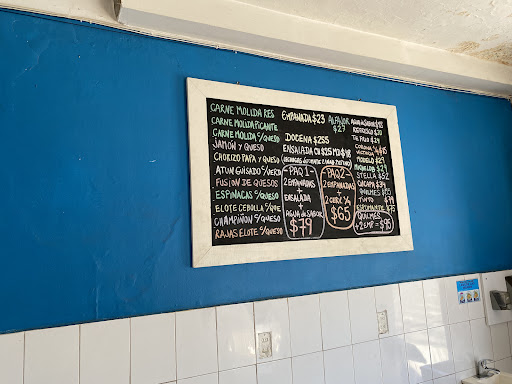 CARNE MOLIDA RES
CARNE MOLIDA PICANTE
CARNE MOLIDA S/QUESO
JAMÓN Y QUESO
CHORIZO PAPA Y QUESO
ATUN GUISADO S/VERD
FUSION DE QUESOS
ESPINACAS S/QUESO
ELOTE CEBOLLA S/QUE
CHAMPIÑON S/QUESO
RAJAS ELOTE S/QUESO
EMPANADA $23
DOCENA $255
ENSALADA CH $25 MD $48
PAQ 1
2 EMPANADAS
+
ENSALADA
+
AGUA de SABOR
$79
PAQ 2
2 EMPANADAS
+
2 CERV.
$65
ALFAJOR
$27
AGUA de SABOR $18
REFRESCO $20
TE FRIO $24
CORONA
VICTORIA
MODELO $27
STELLA $32
CUCAPA $34
QUILMES $55
TINTO
ESPUMANTE
QUILMES
+2 EMP = $95